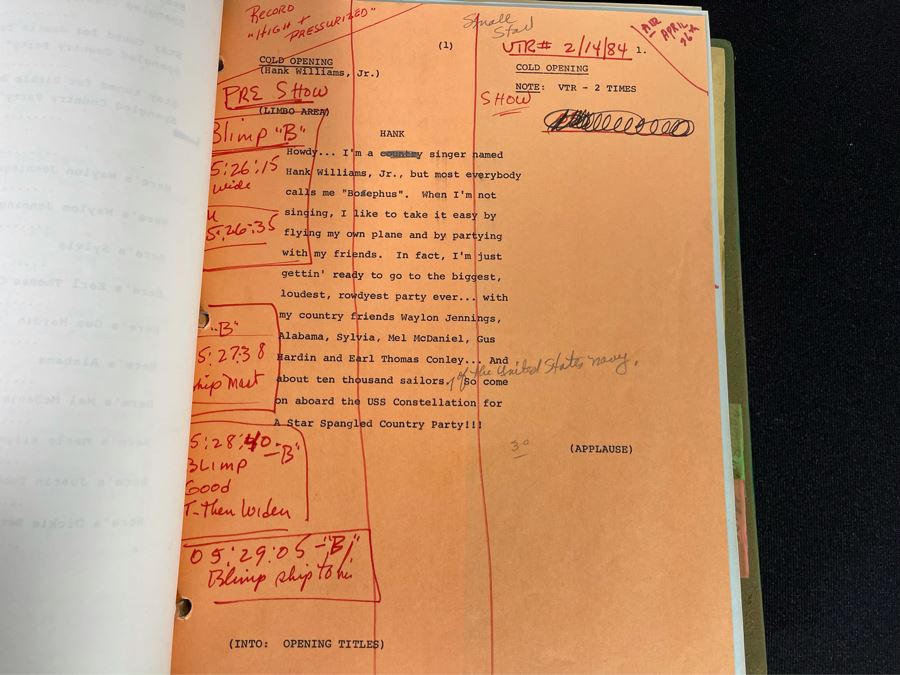 RECORD
"HIGH + PRESSURIZED"
Small
(1)
VTR# 2/14/84
1.
AIR
APRIL
26th
COLD OPENING
(Hank Williams, Jr.)
COLD OPENING
NOTE: VTR - 2 TIMES
PRE SHOW
SHOW
(LIMBO AREA)
Blimp "B"
HANK
Howdy... I'm a country singer named
5:26:15
Hank Williams, Jr., but most everybody
wide
calls me "Bosephus". When I'm not
singing, I like to take it easy by
5:26:35
flying my own plane and by partying
with my friends. In fact, I'm just
gettin' ready to go to the biggest,
loudest, rowdyest party ever... with
my country friends Waylon Jennings,
"B"
Alabama, Sylvia, Mel McDaniel, Gus
5:27:38
Hardin and Earl Thomas Conley... And
of the United States navy.
about ten thousand sailors. So come
ship Mast
on aboard the USS Constellation for
A Star Spangled Country Party!!!
5:28:40-"B"
30
(APPLAUSE)
BLIMP
Good
T-then Widen
05:29:05-"B"
Blimp ship to
(INTO: OPENING TITLES)